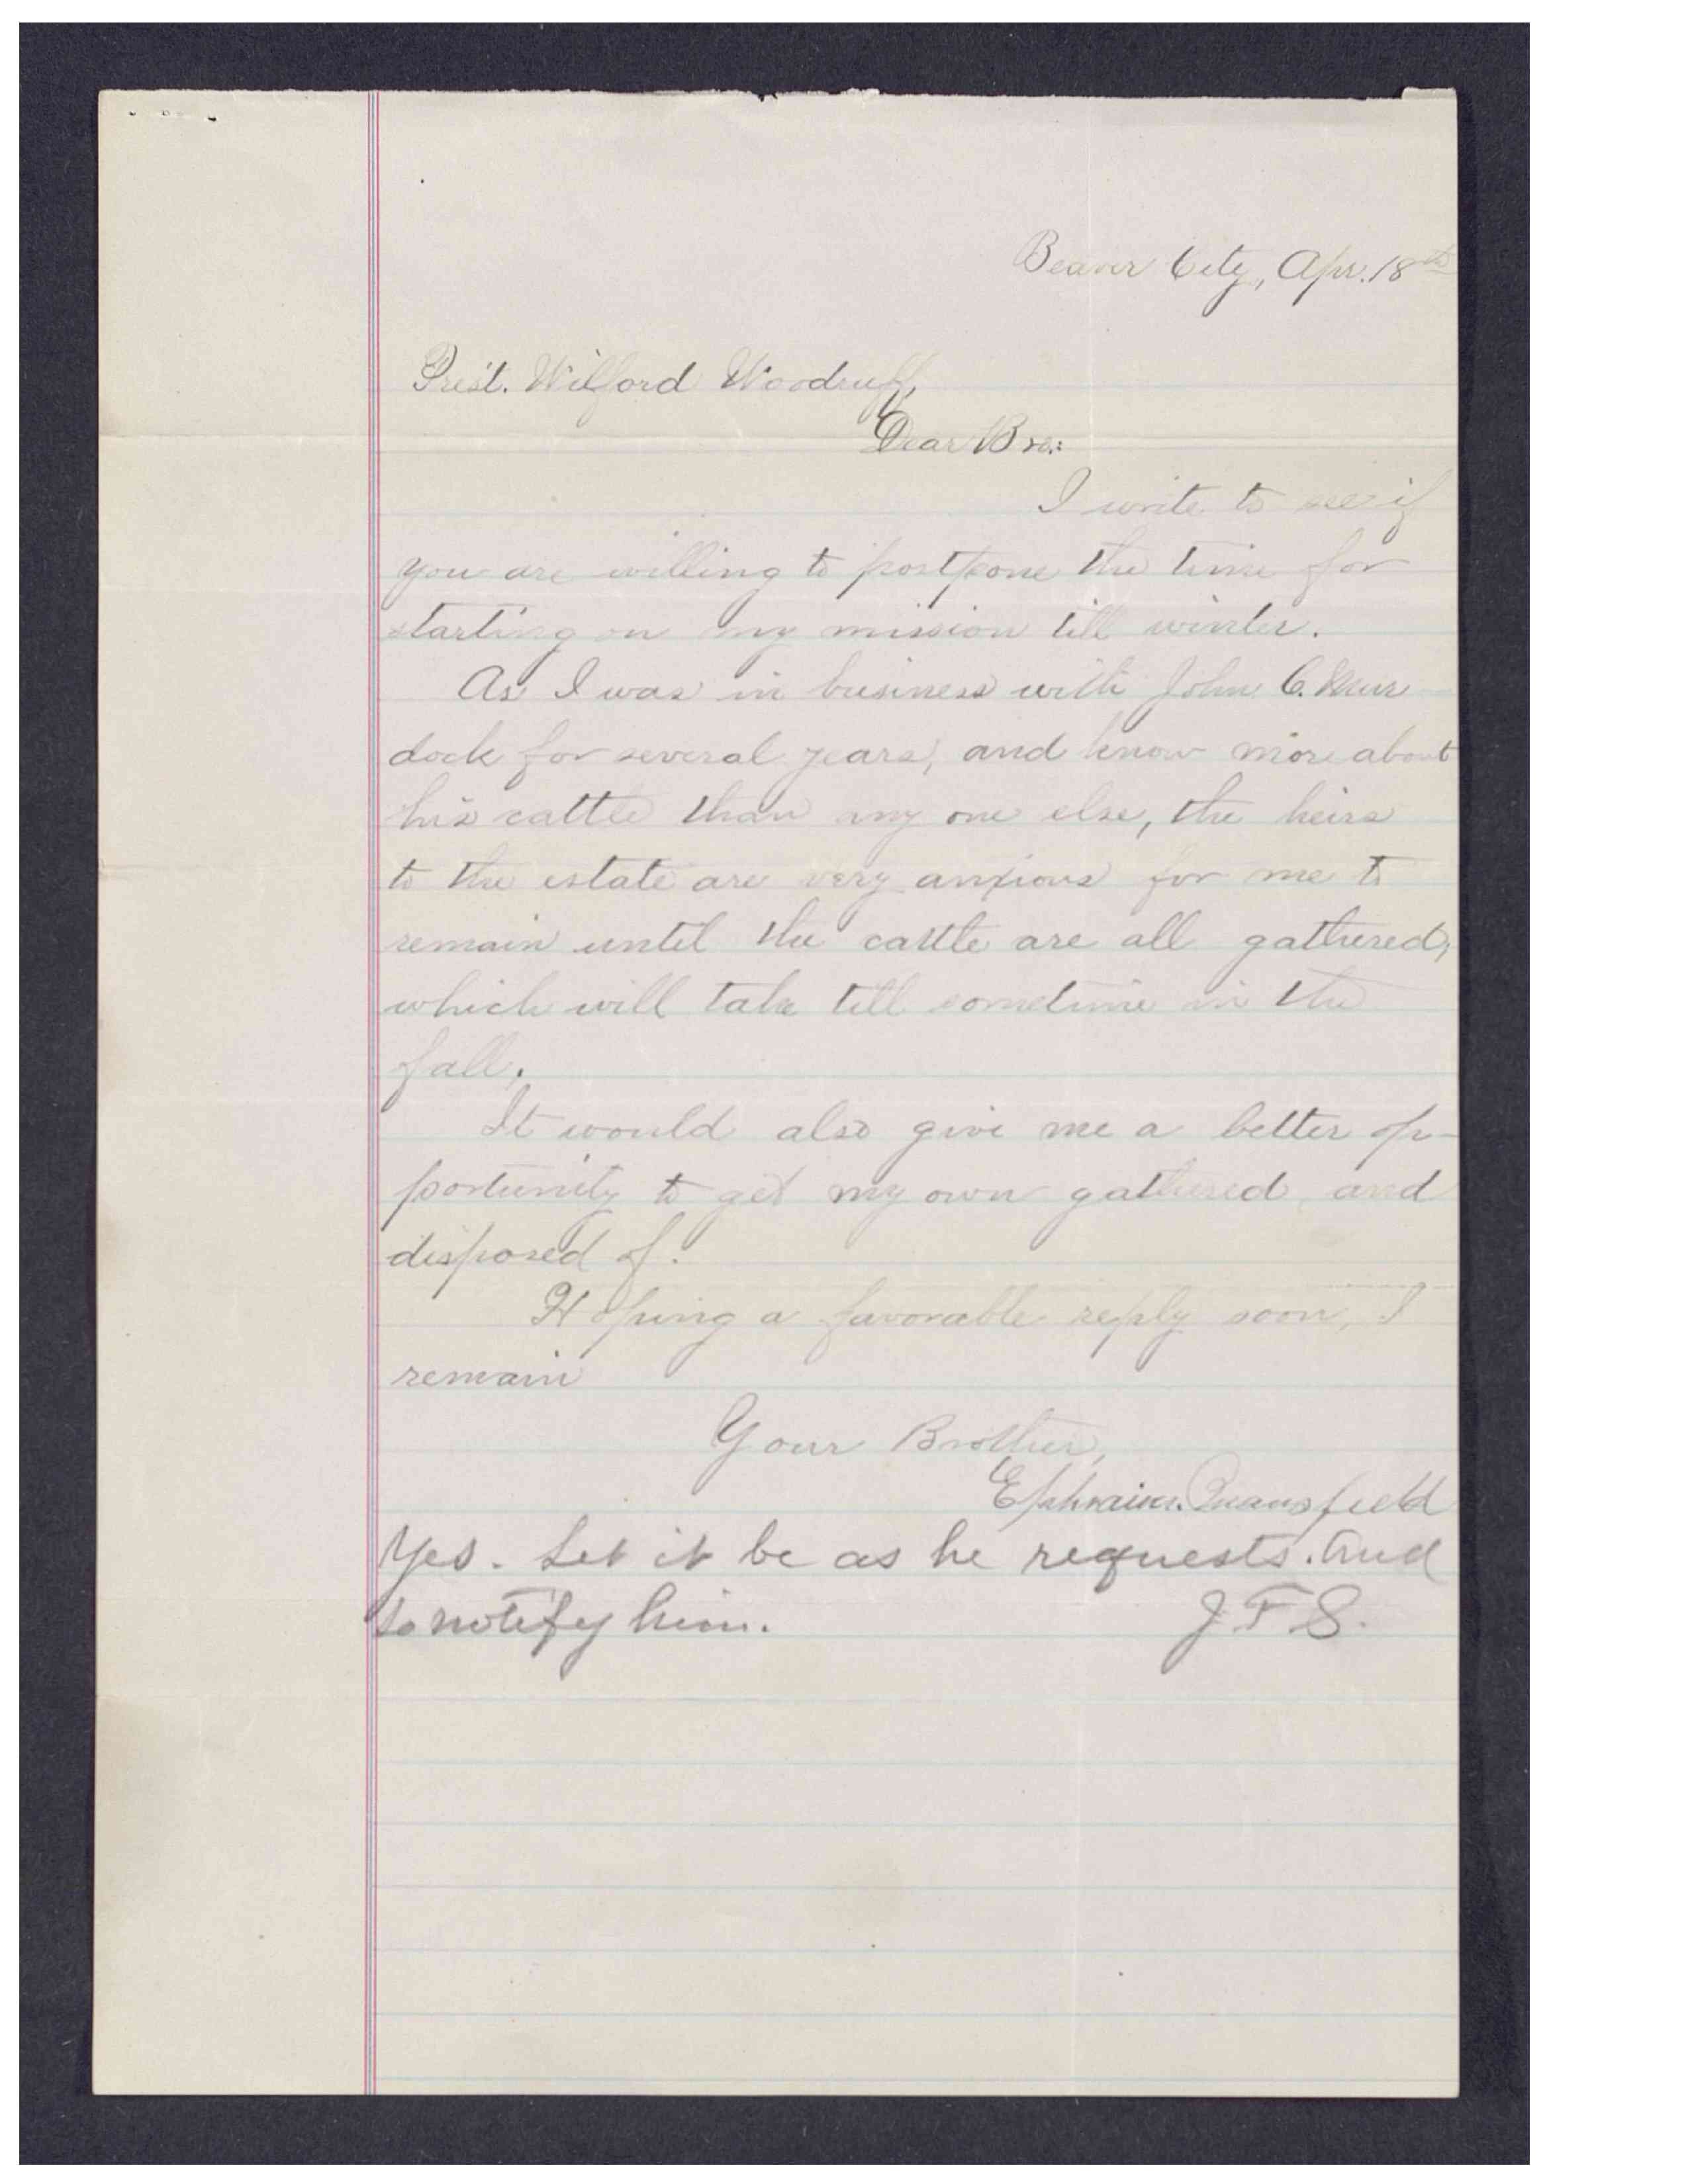 Beaver City, Apr. 18th
Prest. Wilford Woodruff,
Dear Bro.:
I write to see if
you are willing to postpone the time for
starting on my mission till winter.
As I was in business with John C. Mur
dock for several years, and know more about
his cattle than any one else, the heirs
to the estate are very anxious for me to
remain until the cattle are all gathered,
which will take till sometime in the
fall.
It would also give me a better op-
portunity to get my own gathered and
disposed of.
Hoping a favorable reply soon, I
remain
Your Brother,
Ephraim Twansfield
Yes. Let it be as he requests. And
so notify him. J F S.